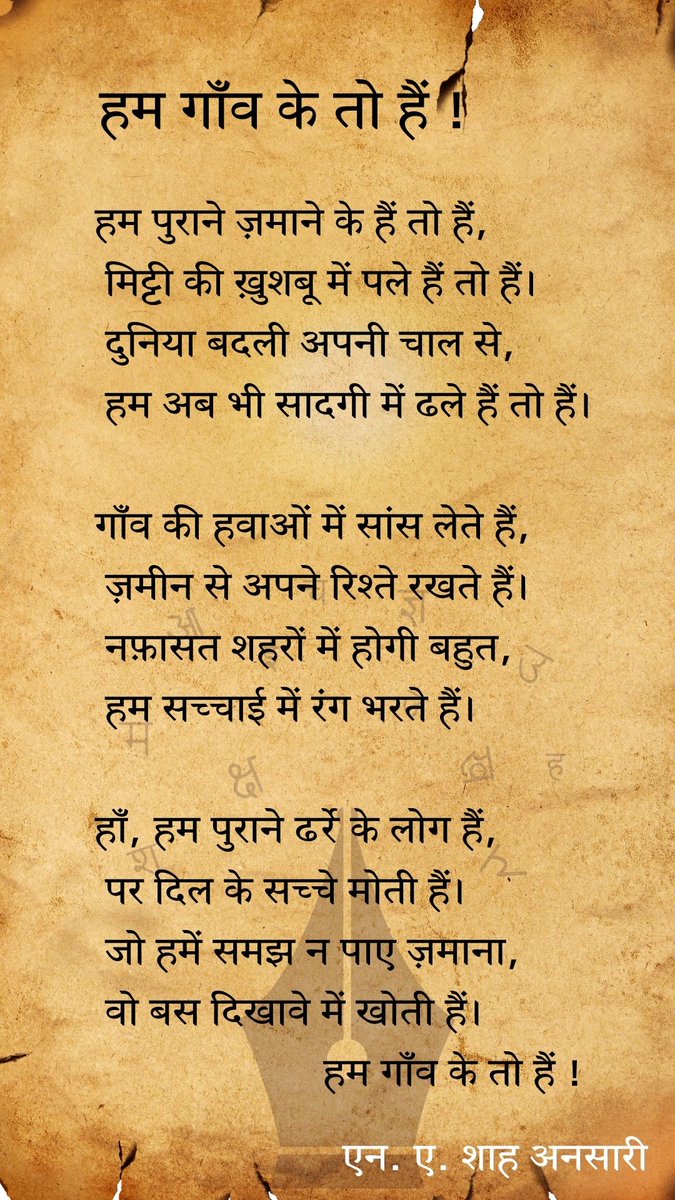 हम गाँव के तो हैं !
हम पुराने ज़माने के हैं तो हैं,
मिट्टी की ख़ुशबू में पले हैं तो हैं।
दुनिया बदली अपनी चाल से,
हम अब भी सादगी में ढले हैं तो हैं।
गाँव की हवाओं में सांस लेते हैं,
ज़मीन से अपने रिश्ते रखते हैं।
नफ़ासत शहरों में होगी बहुत,
हम सच्चाई में रंग भरते हैं।
हाँ, हम पुराने ढर्रे के लोग हैं,
पर दिल के सच्चे मोती हैं।
जो हमें समझ न पाए ज़माना,
वो बस दिखावे में खोती हैं।
हम गाँव के तो हैं !
एन. ए. शाह अनसारी